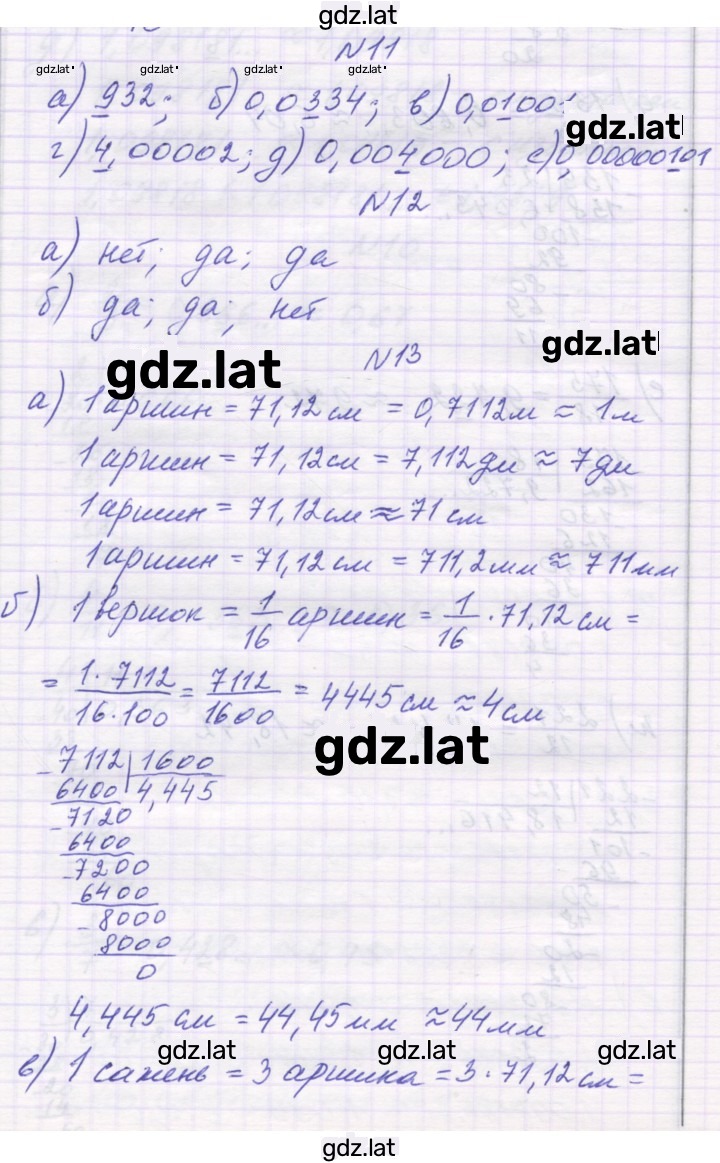 gdz.lat
N11
gdz.lat gdz.lat gdz.lat gdz.lat
а) 932; б) 0,0334; в) 0,0100;
gdz.lat
г) 4,00002; д) 0,004000; е) 0,00000101
N12
а) нет; да; да
б) да; да; нет
gdz.lat
N13
gdz.lat
а) 1 аршин = 71,12 см = 0,7112 м ≈ 1 м
1 аршин = 71,12 см = 7,112 дм ≈ 7 дм
1 аршин = 71,12 см ≈ 71 см
1 аршин = 71,12 см = 711,2 мм ≈ 711 мм
б) 1 вершок = 1/16 аршин = 1/16 · 71,12 см =
= 1·7112/16·100 = 7112/1600 = 4445 см ≈ 4 см
gdz.lat
- 7112 | 1600
6400 4,445
- 7120
6400
- 7200
6400
- 8000
8000
0
4,445 см = 44,45 мм ≈ 44 мм
gdz.lat gdz.lat gdz.lat
в) 1 сажень = 3 аршина = 3 · 71,12 см =
gdz.lat